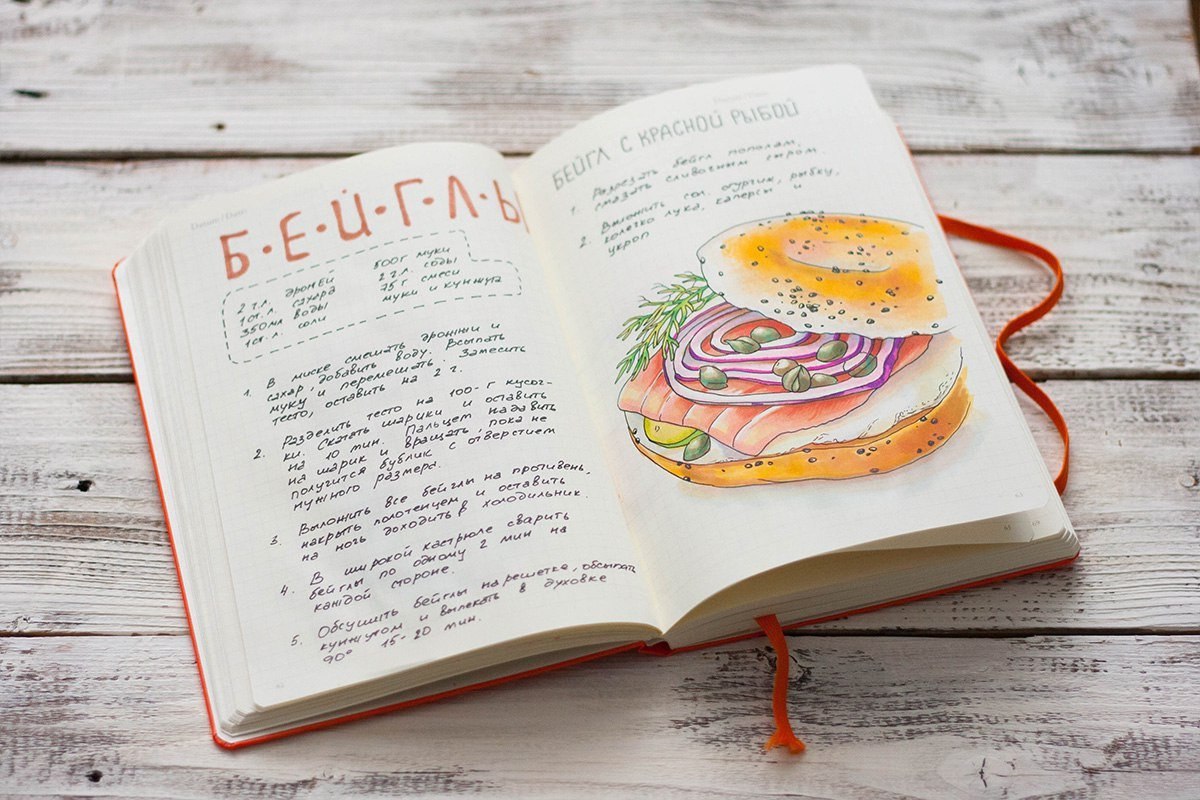 Б·Е·Й·Г·Л·Ы
2 ч.л. дрожжей 500г муки
1 ст.л. сахара 2 ч.л. соды
350мл воды 75 г смеси
1 ст. л. соли муки и кунжута
1. В миске смешать дрожжи и
сахар, добавить воду. Всыпать
муку и перемешать. Замесить
тесто, оставить на 2 г.
2. Разделить тесто на 100-г кусоч-
ки. Скатать шарики и оставить
на 10 мин. Пальцем надавить
на шарик и вращать, пока не
получится бублик с отверстием
нужного размера.
3. Выложить все бейглы на противень,
накрыть полотенцем и оставить
на ночь доходить в холодильник.
4. В широкой кастрюле сварить
бейглы по одному 2 мин на
каждой стороне.
5. Обсушить бейглы на решетке, обсыпать
кунжутом и выпекать в духовке
90° 15-20 мин.
БЕЙГЛ С КРАСНОЙ РЫБОЙ
1. Разрезать бейгл пополам,
смазать сливочным сыром.
2. Выложить сол. огурчик, рыбку,
колечко лука, каперсы и
укроп